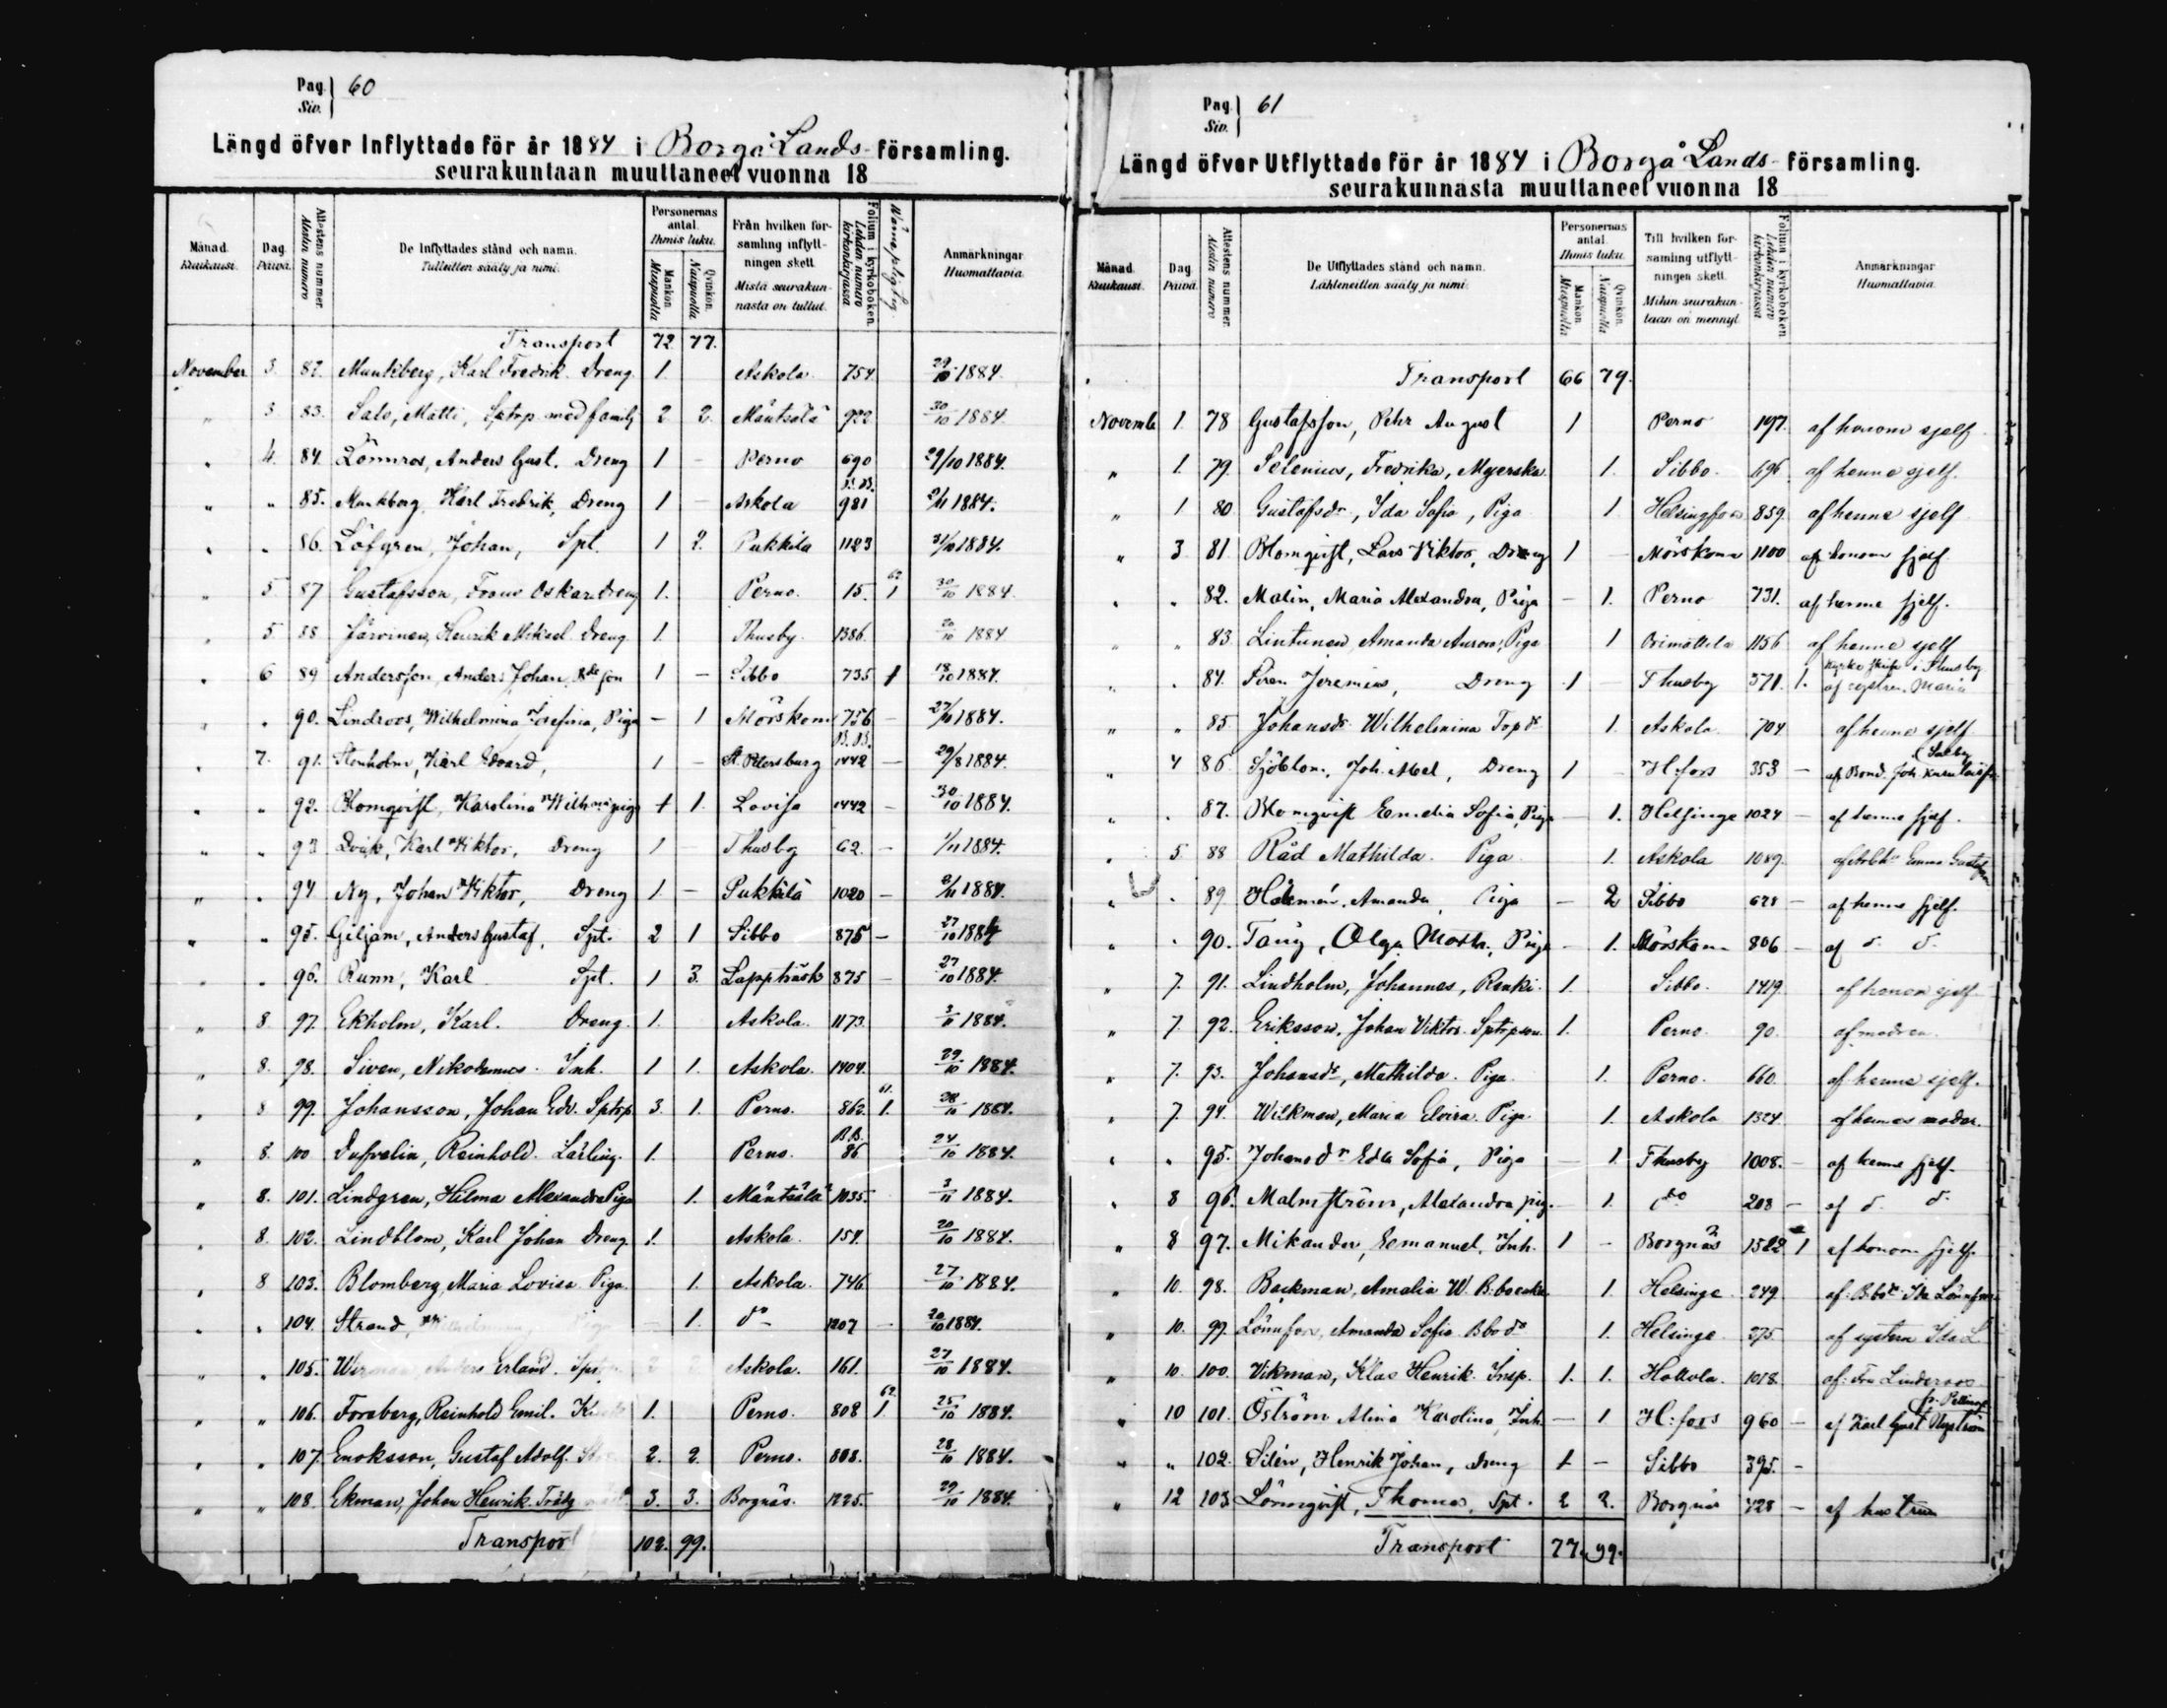 Pag. 60
Siv.
Längd öfver Inflyttade för år 1884 i Borgå Lands- församling.
seurakuntaan muuttaneet vuonna 18
Månad. Kuukausi. Dag. Päivä. Attestens nummer. Alestin numero De Inflyttades stånd och namn. Tulleitten sääty ja nimi. Personernas antal. Ihmis luku. Mankön. Miespuolta Qvinkön. Naispuolta Från hvilken församling inflyttningen skett. Mistä seurakunnasta on tullut. Folium i kyrkoboken. Lehden numero kirkonkirjassa Anmärkningar Huomattavia.
Transport 72 77.
November 3. 82. Munkberg, Karl Fredrik. Dreng. 1. Askola. 754 29/10 1884.
" 3 83. Salo, Matti, Sptrp. med familj 2 2. Mäntsälä 922 30/10 1884.
" 4. 84. Lönnros, Anders Gust. Dreng 1 – Perno 690 29/10 1884.
" " 85. Munkberg, Karl Fredrik, Dreng 1 – Askola B.B. 981 2/11 1884.
" " 86. Löfgren, Johan, Spt. 1 2. Pukkila 1123 31/10 1884.
" 5 87 Gustafsson, Frans Oskar. dreng 1. Perno. 15. 62. 1 30/10 1884.
" 5 88 Järvinen, Henrik Mikael Dreng. 1. Thusby. 1386. 20/10 1884
" 6 89 Andersson, Anders Johan, Bdeson 1 – Sibbo 735 1 18/10 1884.
" " 90. Lindroos, Wilhelmina Josefina, Piga – 1 Mörskom 756 – 27/10 1884.
" 7. 91. Stenholm, Karl Edvard, 1 – St. Petersburg B.B. 1442 – 29/8 1884.
" " 92. Blomqvist, Karolina Wilhma piga 1 1. Lovisa 1442 – 30/10 1884.
" " 93 Karl Viktor, Dreng 1 – Thusby 62. – 1/11 1884.
" " 94 Ny, Johan Viktor, Dreng 1. – Pukkila 1020 – 2/11 1884.
" " 95. Giljam, Anders Gustaf, Spt. 2 1 Sibbo 875 – 27/10 1884
" " 96. Runn, Karl Spt. 1 3. Lappträsk 875 – 27/10 1884.
" 8. 97. Ekholm, Karl. Dreng. 1. Askola. 1173. 3/11 1884.
" 8. 98. Siven, Nikodemus. Inh. 1 1. Askola. 1404. 29/10 1884.
" 8 99. Johansson, Johan Edv. Sptrp. 3. 1. Perno. 862. 61. 1. 28/10 1884.
" 8. 100 Dufvelin, Reinhold. Lärling. 1. Perno. B.B. 86 24/10 1884.
" 8. 101. Lindgren, Hilma Alexandra Piga 1. Mäntsälä 1035. 3/11 1884.
" 8. 102. Lindblom, Karl Johan Dreng. 1. Askola. 154. 20/10 1884.
" 8 103. Blomberg, Maria Lovisa. Piga. 1. Askola. 746. 27/10 1884.
" " 104. Strand, Wilhelmina, Piga – 1. do 1207 – 20/10 1884.
" " 105. Anders Erland. Askola. 161. 27/10 1884.
" " 106. Forsberg, Reinhold Emil. 1. Perno. 808 62. 1. 25/10 1884.
" " 107. Enoksson, Gustaf Adolf. 2. 2. Perno. 808. 28/10 1884.
" " 108. Ekman, Johan Henrik 3. 3. Borgnäs. 1225. 29/10 1884.
Transport 102. 99.
Pag. 61
Siv.
Längd öfver Utflyttade för år 1884 i Borgå Lands- församling.
seurakunnasta muuttaneet vuonna 18
Månad. Kuukausi. Dag. Päivä. Attestens nummer. Alestin numero De Utflyttades stånd och namn. Lähteneitten sääty ja nimi. Personernas antal. Ihmis luku. Mankön. Miespuolta Qvinkön. Naispuolta Till hvilken församling utflyttningen skett. Mihin seurakuntaan on mennyt. Folium i kyrkoboken. Lehden numero kirkonkirjassa Anmärkningar Huomattavia.
Transport 66 79.
Novemb. 1. 78 Gustafsson, Pehr August 1 Perno 197. af honom sjelf.
" 1. 79. Selenius, Fredrika, 1. Sibbo. 696 af henne sjelf.
" 1 80 Gustafsdr, Ida Sofia, Piga 1 Helsingfors 859. af henne sjelf
" 3. 81. Blomqvist, Lars Viktor, Dreng 1 – Mörskom 1100 af honom sjelf.
" " 82. Malin, Maria Alexandra, Piga – 1. Perno 731. af henne sjelf.
" " 83 Lintunen, Amanda Aurora, Piga 1 Orimattila 1156 af henne sjelf
" " 84. Jeremias, Dreng 1 – Thusby 371. 1. af Maria
" " 85 Johansdr Wilhelmina 1. Askola 704 af henne sjelf
" 4 86. Sjöblom, Joh. Abel, Dreng 1 – H:fors 353 – af Bond. Joh.
" " 87. Blomqvist Emelia Sofia, Piga – 1. Helsinge 1024 – af henne sjelf.
" 5. 88 Råd Mathilda. Piga 1. Askola 1089.
" " 89. Amanda, Piga – 2 Sibbo 628 – af henne sjelf.
" " 90. Olga Math., Piga – 1. Mörskom 806 – af d. d.
" 7. 91. Lindholm, Johannes, Renki. 1. Sibbo. 1419. af honom sjelf.
" 7. 92. Eriksson, Johan Viktor. Sptrpson. 1. Perno. 90. af modren.
" 7. 93. Johansdr, Mathilda. Piga. 1. Perno. 660. af henne sjelf.
" 7. 94. Wilkman, Maria Elvira. Piga. 1. Askola 1324. af hennes moder.
" " 95. Johansdr Edla Sofia, Piga – 1. Thusby 1008. – af henne sjelf.
" 8 96. Malmström, Alexandra pig. – 1. do 208 – af d. d.
" 8 97. Mikander, Emanuel, Inh. 1 – Borgnäs 1522 1 af honom sjelf.
" 10. 98. Backman, Amalia W. 1. Helsinge 249
" 10. 99. Lönnfors, Amanda Sofia 1. Helsinge 375 af system Ida L
" 10. 100. Vikman, Klas Henrik. Insp. 1. 1. Hollola. 1018. af: Fru Linderoos
" 10 101. Öström Alina Karolina, Inh. – 1 H:fors 960 – af Karl Gust Nyström
" " 102. Silén, Henrik Johan, Dreng 1 – Sibbo 395. –
" 12 103. Lönnqvist, Thomas, Spt. 2 2. Borgnäs 428 – af hustrun
Transport 77. 99.